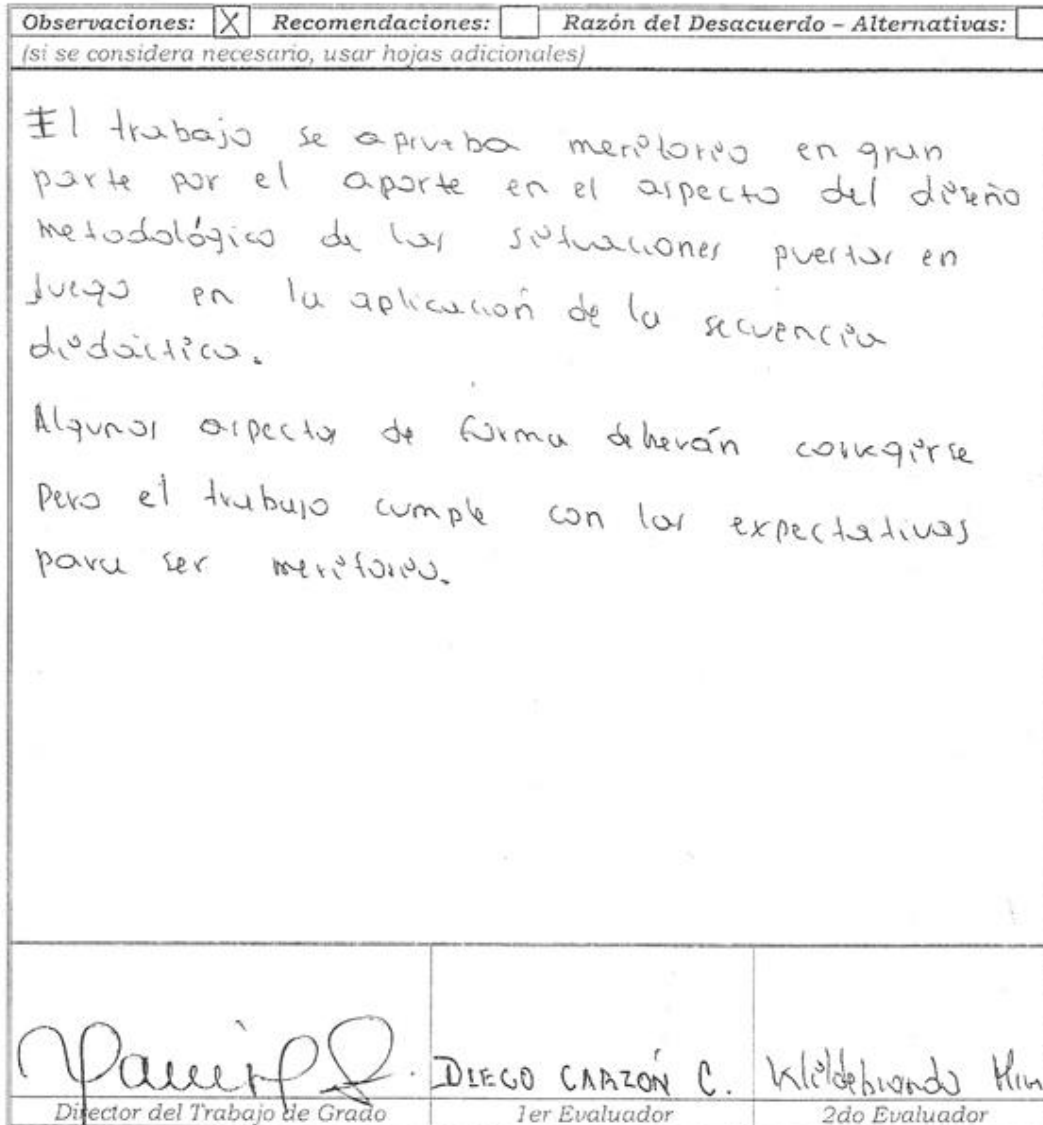 Observaciones: X Recomendaciones: Razón del Desacuerdo – Alternativas:
(si se considera necesario, usar hojas adicionales)
El trabajo se aprueba meritorio en gran
parte por el aporte en el aspecto del diseño
metodológico de las situaciones puestas en
juego en la aplicación de la secuencia
didáctica.
Algunos aspectos de forma deberán corregirse
pero el trabajo cumple con las expectativas
para ser meritorio.
DIEGO GARZÓN C.
Director del Trabajo de Grado 1er Evaluador 2do Evaluador